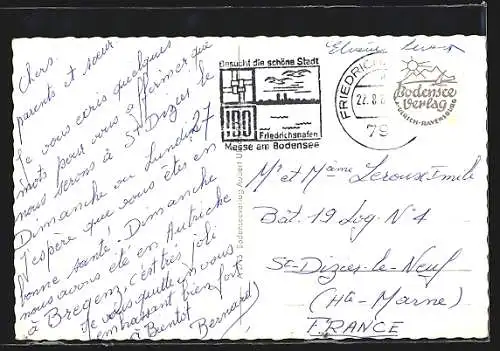 Chers
parents et sœur.
Je vous écris quelques
mots pour vous affirmer que
nous serons à St Dizier le
Dimanche ou Lundi 27
J'espère que vous êtes en
bonne santé! Dimanche
nous avons été en Autriche
à Bregenz, c'est très joli
Je vous quitte en vous
embrassant bien fort
à Bientôt
Bernard
Besucht die schöne Stadt
IBO
Friedrichshafen
Messe am Bodensee
FRIEDRICH
22.8.
79
Bodensee
Verlag
ZÜRICH-RAVENSBURG
Bodenseeverlag
Mr et Mame Leroux Emile
Bât. 19 Log N° 1
St-Dizier-le-Neuf
(Hte-Marne)
FRANCE